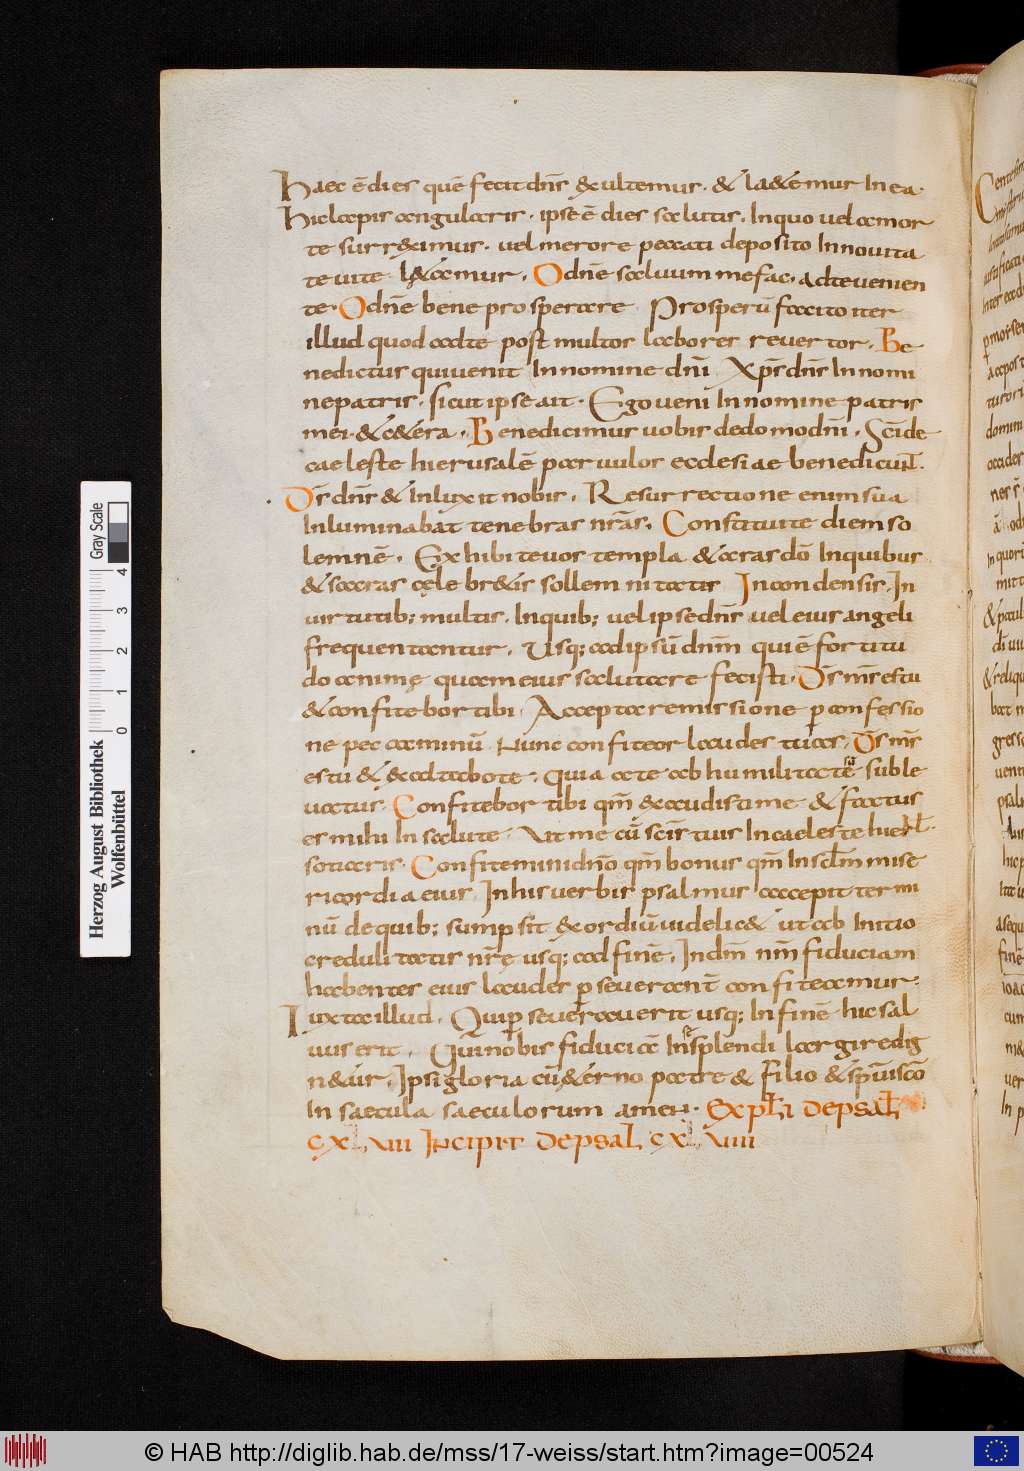 Haec ē dies quē fecit dn̄s exultemur · & laetemur In ea ·
Hic lapis angularis · ipse ē dies salutis · In quo uel a mor
te surreximus · uel merore peccati deposito In nouita
te uite laetamur · O dn̄e saluum me fac · ad te uenien
te · O dn̄e bene prosperare Prosperū facito iter
illud quod ad te post multos labores reuertor · Be
nedictus qui uenit In nomine dn̄i Xp̄s dn̄s In nomi
ne patris · sicut ipse ait · Ego ueni In nomine patris
mei · & cetera · Benedicimus uobis de domo dn̄i · Sci de
caeleste hierusalē paruulos ecclesiae benedicunt ·
Ds̄ dn̄s & Inluxit nobis · Resurrectione enim sua
Inluminabat tenebras nr̄as · Constituite diem so
lemnē · Exhibite uos templa & aras dō In quibus
& sacras celebretis sollemnitatis In condensis · In
uirtutib; multis · In quib; uel ipse dn̄s uel eius angeli
frequentantur · Usq; ad ipsū dn̄m qui ē fortitu
do animę quam eius salutare fecisti · Ds̄ ms̄ es tu
& confitebor tibi · Accepta remissione p confessio
ne peccaminū Nunc confiteor laudes tuas · Ds̄ ms̄
es tu & exaltabo te · quia a te ab humilitate sua suble
uatus · Confitebor tibi qm̄ exaudisti me & factus
es mihi In salute · Ut me cū scis tuis In caeleste hierl
sotiaris · Confitemini dn̄o qm̄ bonus qm̄ In sclm mise
ricordia eius · In his uerbis psalmus accepit termi
nū de quib; sumpsit exordiū uidelicet ut ab Initio
credulitatis nrę usq; ad finē · In dm̄ nm̄ fiduciam
habentes eius laudes pseuerant confiteamur ·
Iuxta illud · Qui pseuerauerit usq; In finē hic sal
uus erit · Qui nobis fiducia In splendi largire dig
netur · Ipsi gloria cū aeterno patre & filio & spū sco
In saecula saeculorum amen · Explt depsal
CXVII Incipit depsal CXVIII
Herzog August Bibliothek
Wolfenbüttel
0 1 2 3 4 Gray Scale
© HAB http://diglib.hab.de/mss/17-weiss/start.htm?image=00524